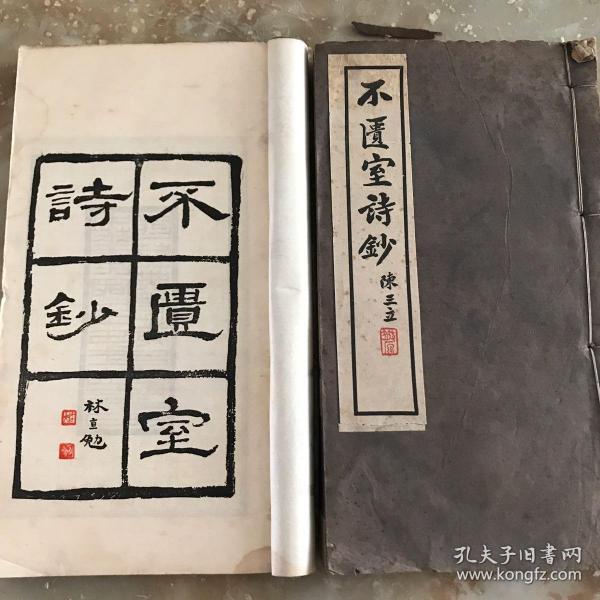 不匱室
詩鈔
林直勉
不匱室詩鈔
陳三立
孔夫子旧書网
www.kongfz.com